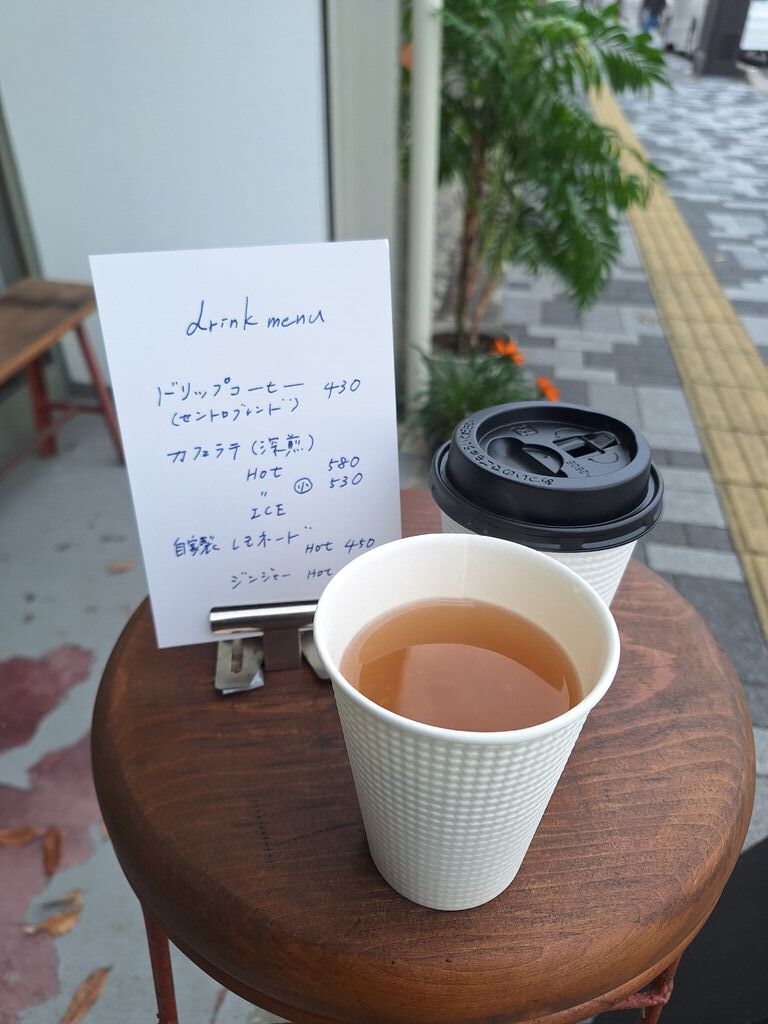 drink menu
ドリップコーヒー 430
(セントロブレンド)
カフェラテ (深煎)
HOT 580
〃 ㋛ 530
ICE
自家製 レモネード HOT 450
ジンジャー HOT